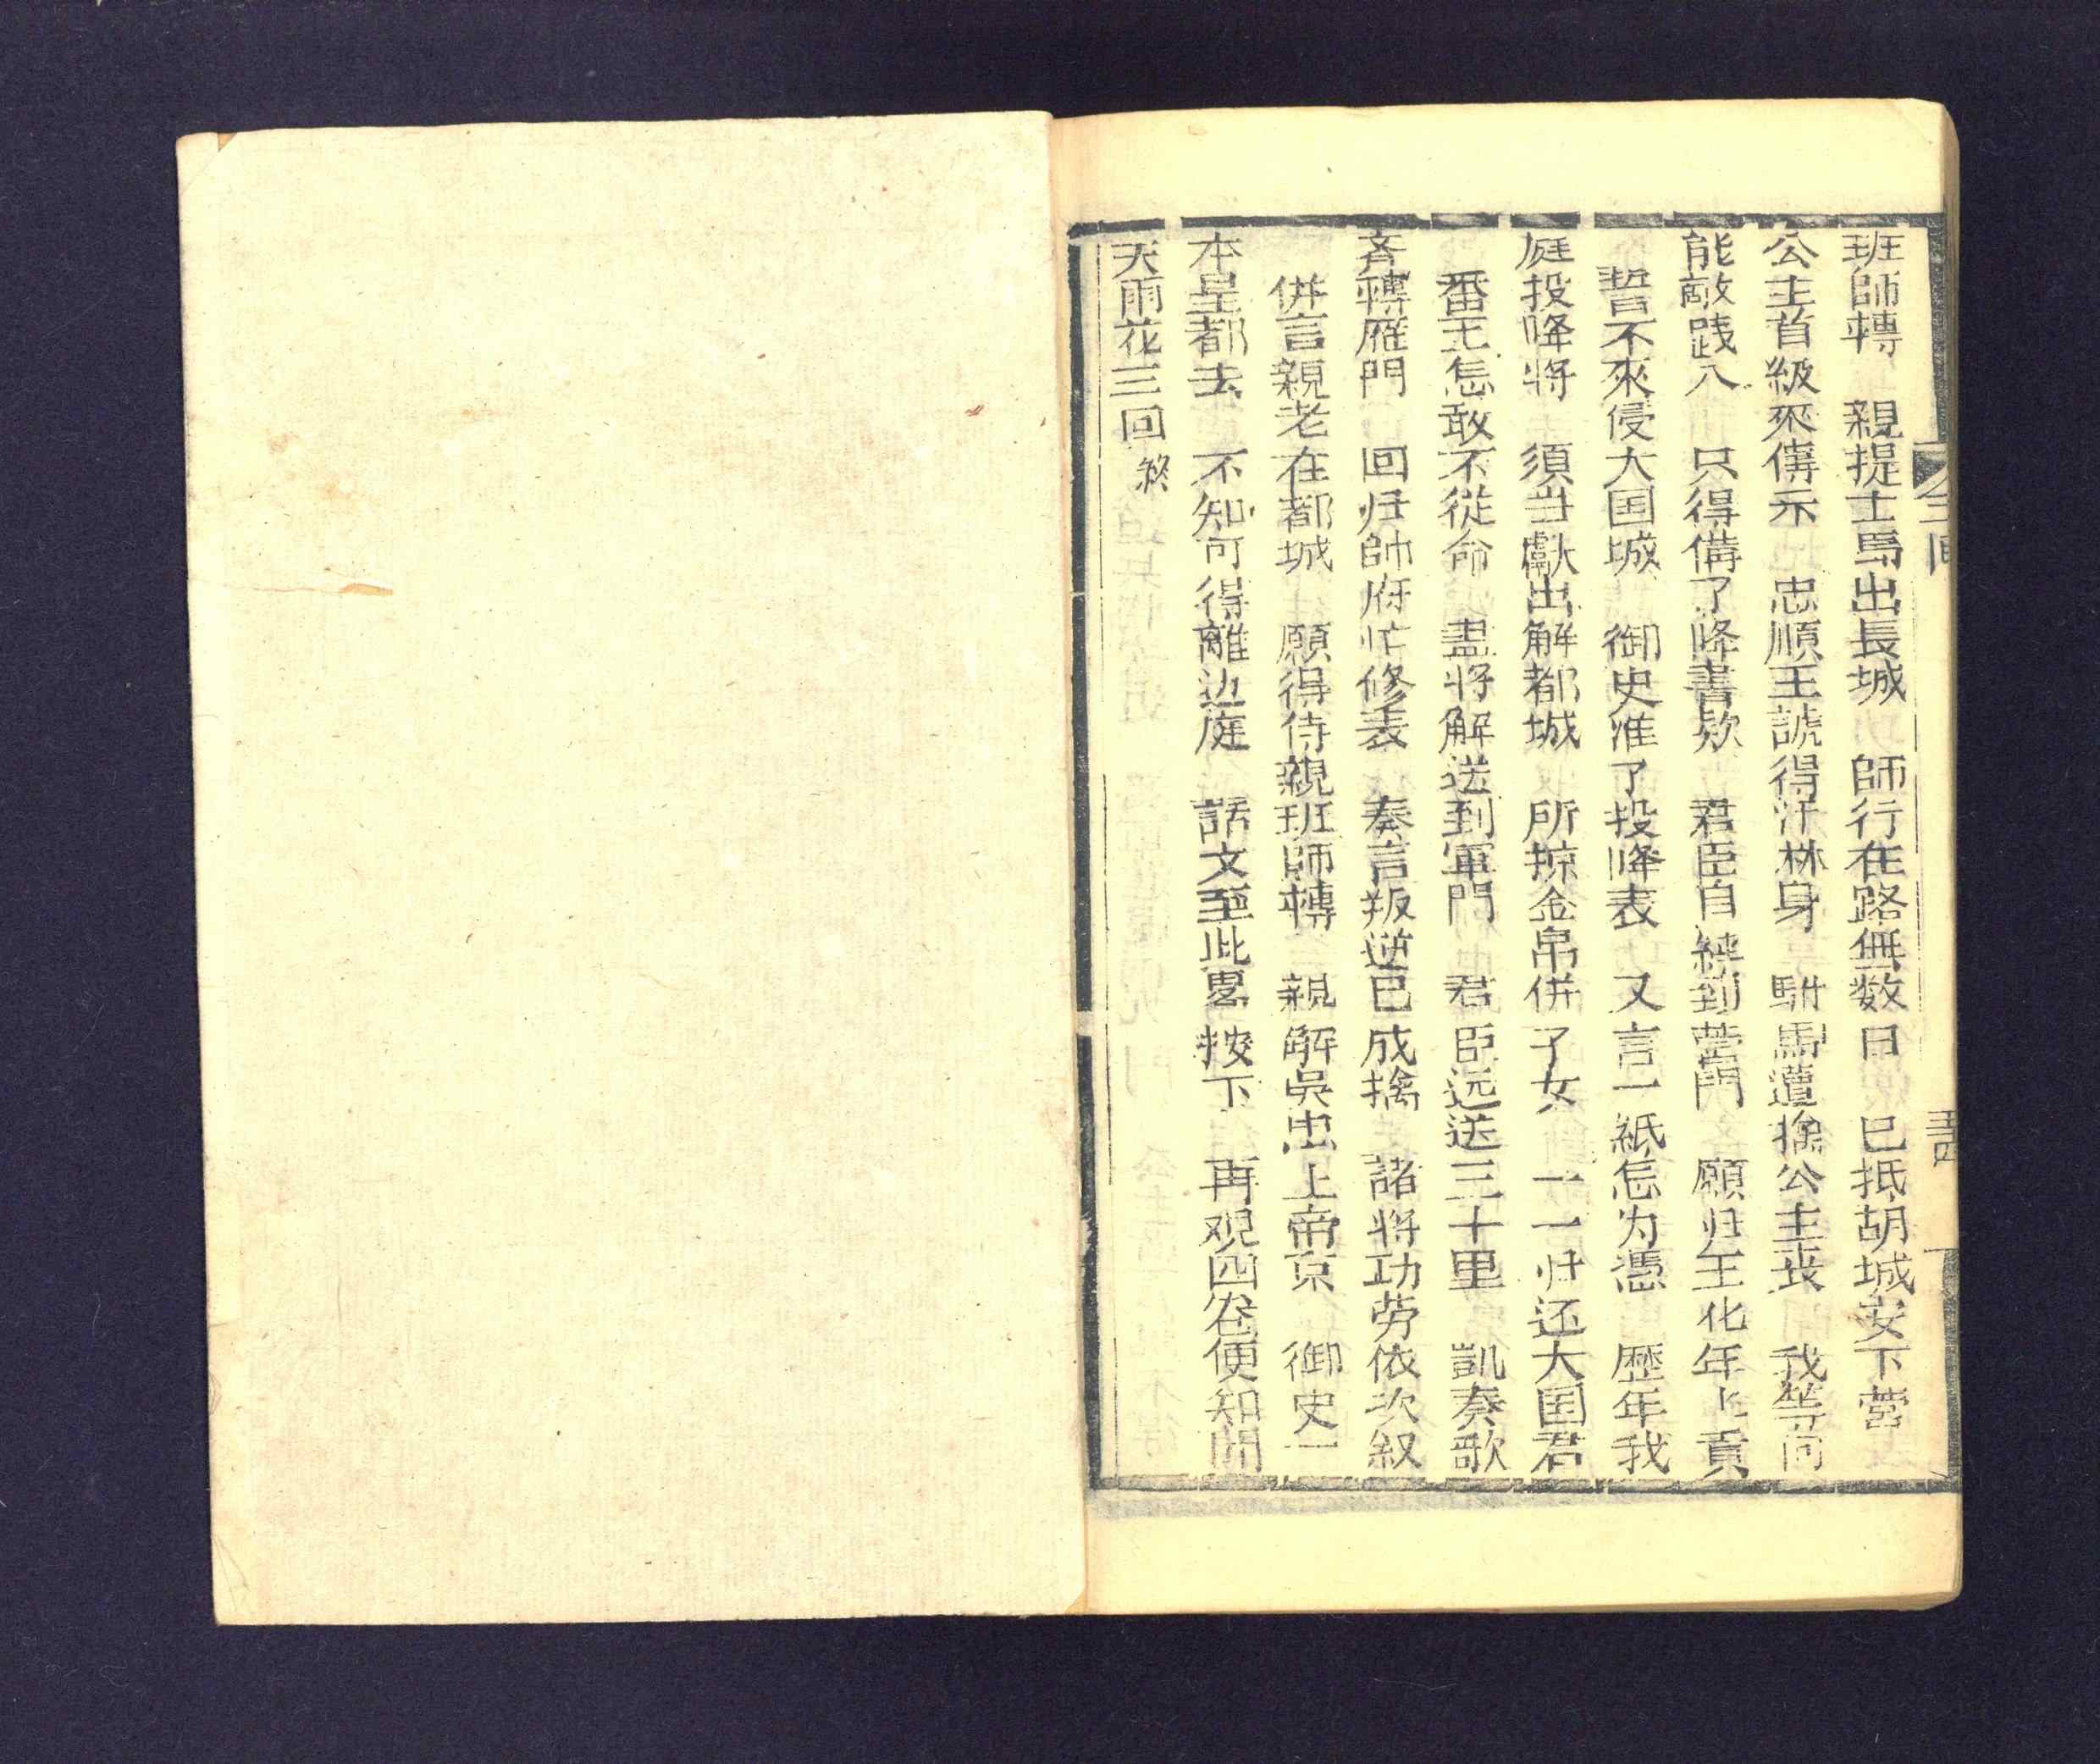 班師轉　親提士馬出長城　師行在路無数日　已抵胡城安下營
公主首級來傳示　忠順王諕得汗林身　駙馬遭擒公主丧　我等何
能敵践八　只得俻了降書欵　君臣自綁到营門　願归王化年上貢
誓不來侵大国城　御史准了投降表　又言一紙怎为憑　歷年我
庭投降将　須当獻出解都城　所掠金帛併子女　一一归还大国君
番王怎敢不從命　盡将解送到軍門　君臣远送三十里　凱奏歌
斉轉雁門　回归帥府忙修表　奏言叛逆已成擒　諸将功劳依次叙
併言親老在都城　願得侍親班師轉　親解吳忠上帝京　御史一
本皇都去　不知可得離边庭　話文至此畧按下　再观四卷便知聞
天雨花三回終
三回
五十四